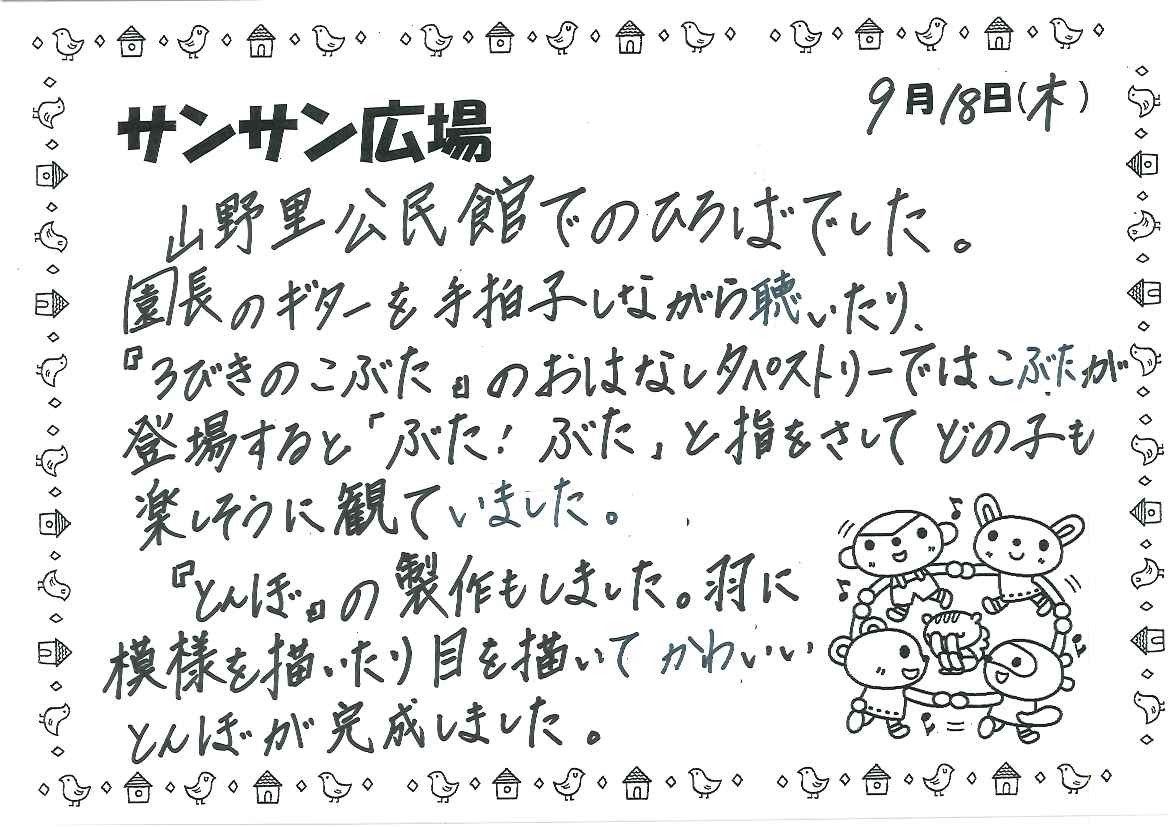 9月18日(木)
サンサン広場
山野里公民館でのひろばでした。
園長のギターを手拍子しながら聴いたり、
『3びきのこぶた』のおはなしタペストリーではこぶたが
登場すると「ぶた！ぶた」と指をさしてどの子も
楽しそうに観ていました。
『とんぼ』の製作もしました。羽に
模様を描いたり目を描いてかわいい
とんぼが完成しました。